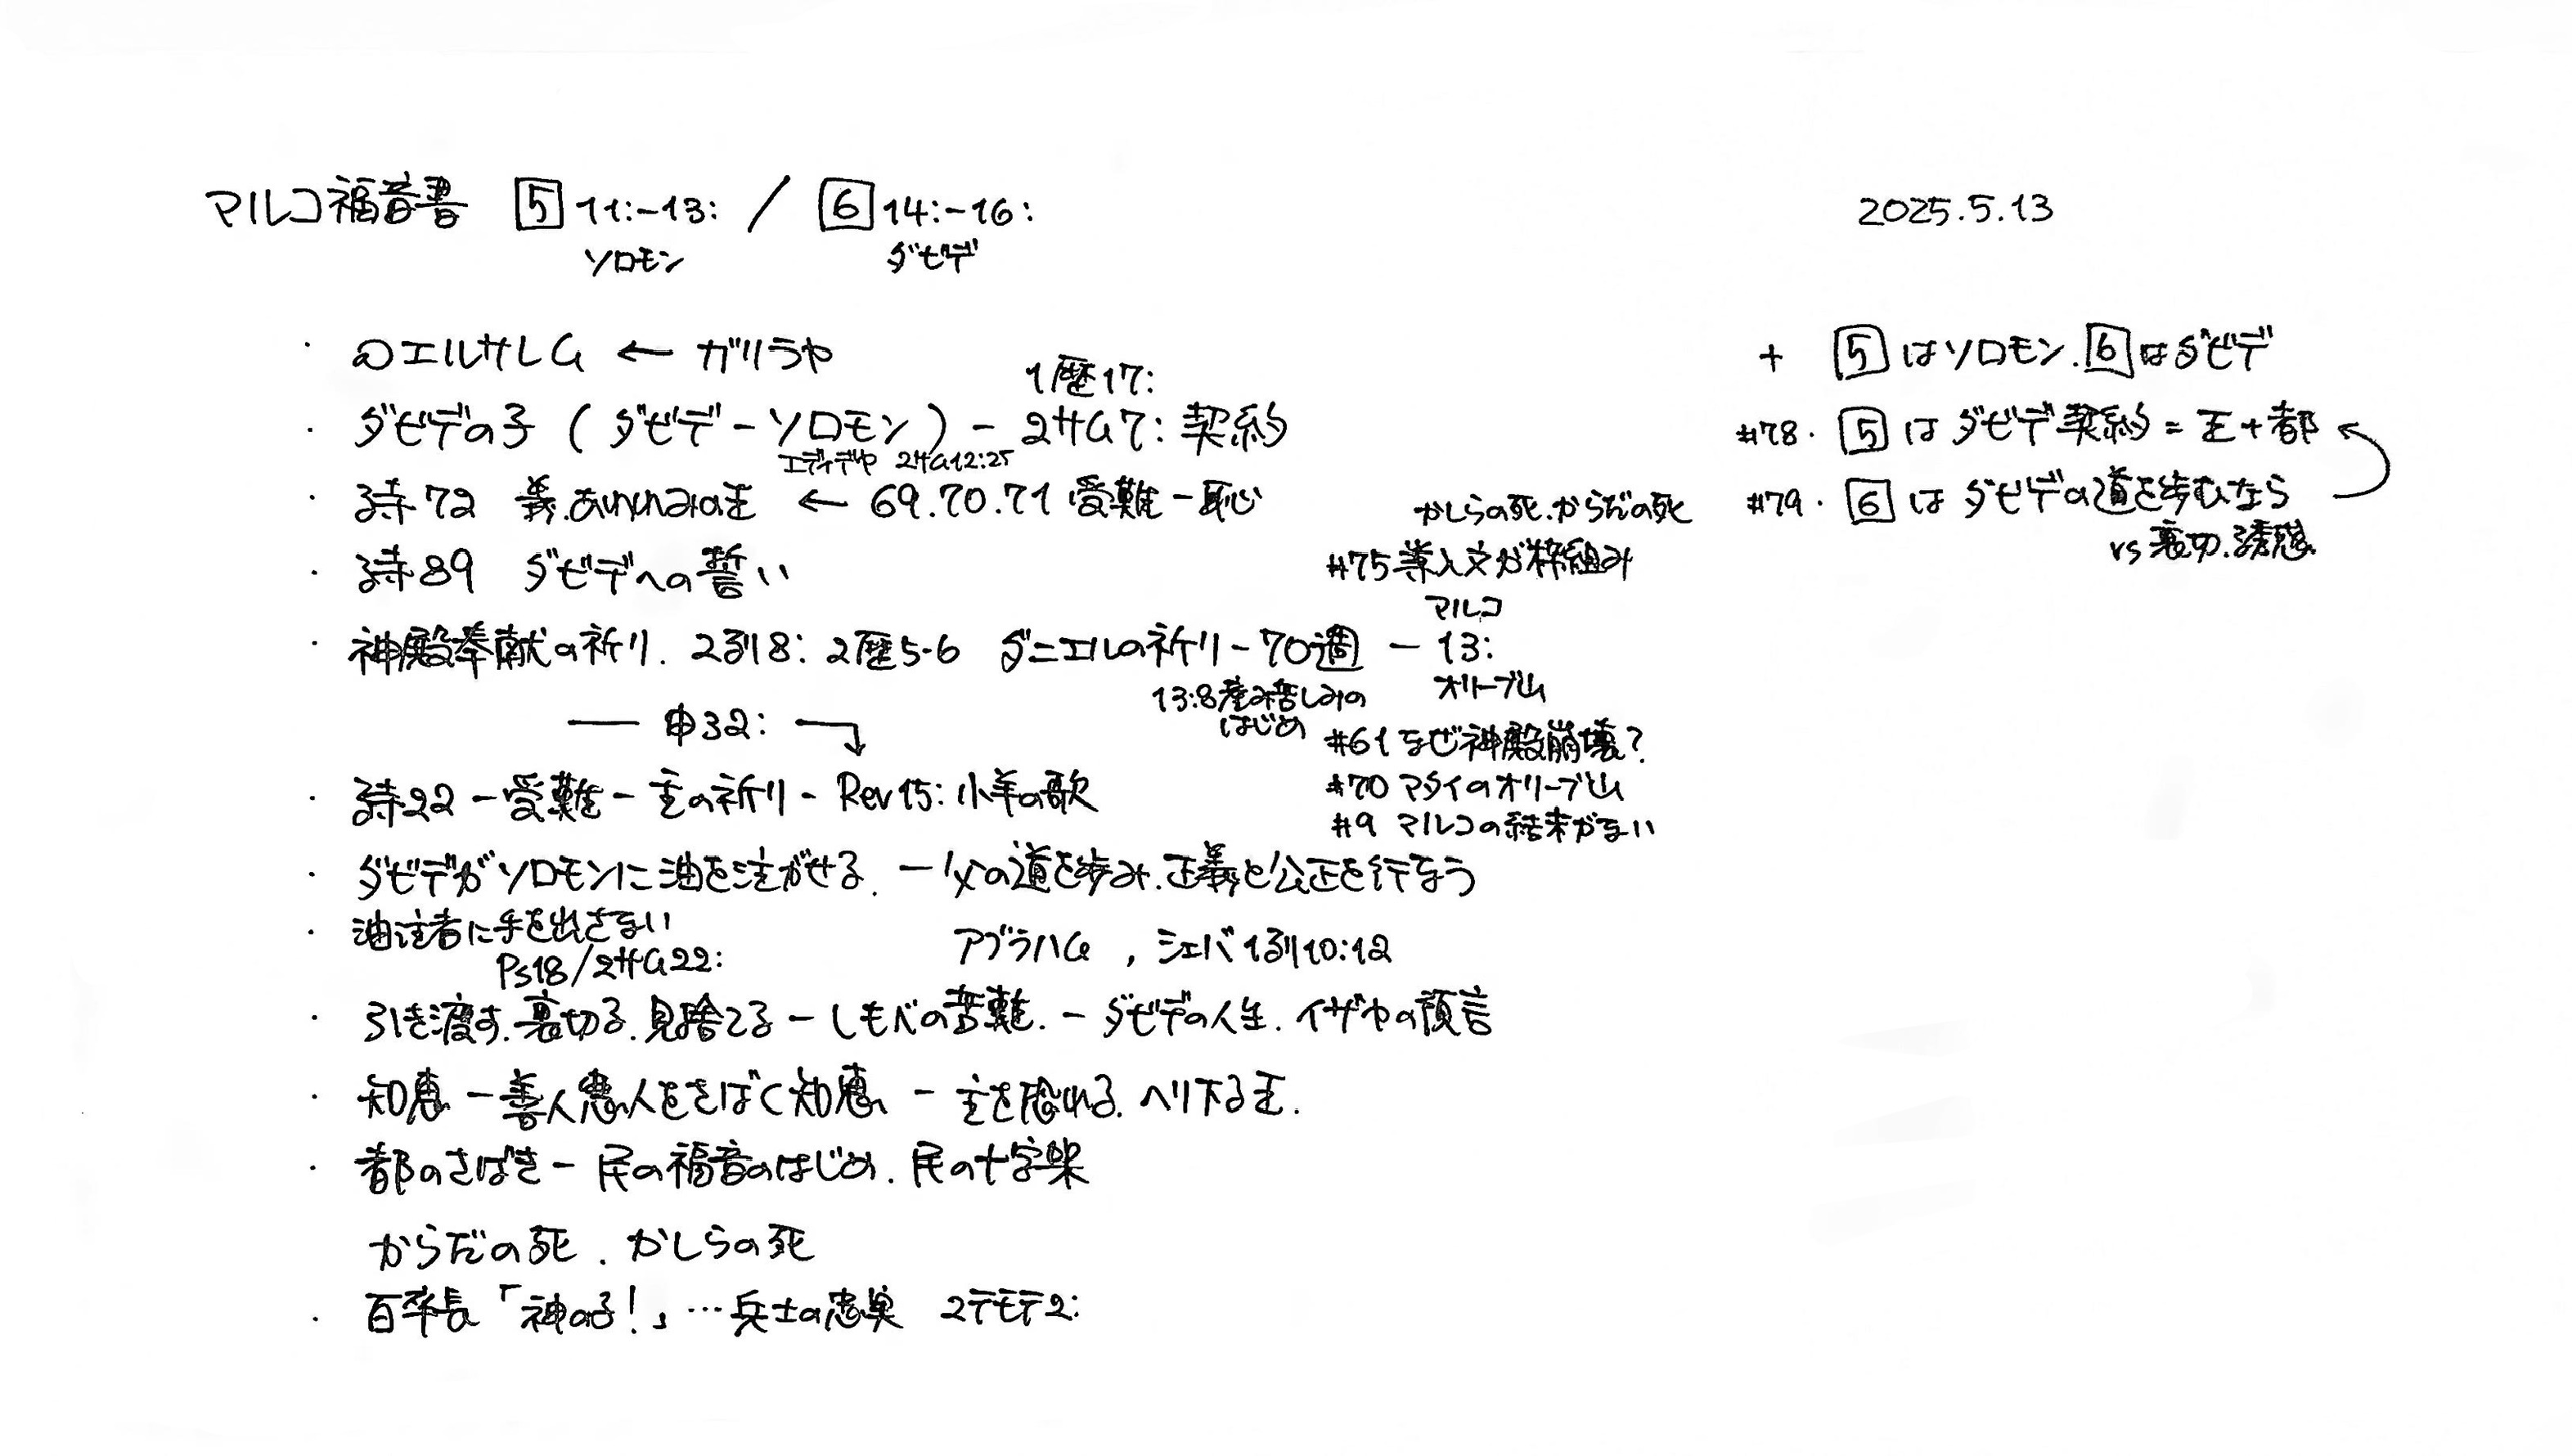 マルコ福音書 5 11:-13: / 6 14:-16:
ソロモン ダビデ
2025.5.13
・ エルサレム ← ガリラヤ
1歴17:
・ ダビデの子 (ダビデ - ソロモン) - 2サム7: 契約
エディデヤ 2サム12:25
・ 詩72 義.あわれみの王 ← 69.70.71 受難 - 恥
・ 詩89 ダビデへの誓い
・ 神殿奉献の祈り. 2列8: 2歴5-6 ダニエルの祈り - 70週 - 13:
マルコ
オリーブ山
13:8産み苦しみの
はじめ
— 申32:
・ 詩22 - 受難 - 主の祈り - Rev 15: 小羊の歌
・ ダビデがソロモンに油を注がせる. - 父の道を歩み.正義と公正を行なう
アブラハム , シェバ 1列10:12
・ 油注者に手を出さない
Ps18/2サム22:
・ 引き渡す.裏切る.見捨てる - しもべの苦難. - ダビデの人生. イザヤの預言
・ 知恵 - 善人悪人をさばく知恵 - 主を恐れる.へり下る王.
・ 都のさばき - 民の福音のはじめ. 民の十字架
からだの死. かしらの死
・ 百卒長「神の子!」…兵士の忠実 2テモテ2:
かしらの死.からだの死
#75 導入文が枠組み
#61 なぜ神殿崩壊?
#70 マタイのオリーブ山
#9 マルコの結末がない
+ 5 はソロモン. 6 はダビデ
#78. 5 は ダビデ契約 = 王+都
#79. 6 は ダビデの道を歩むなら
vs 裏切.誘惑